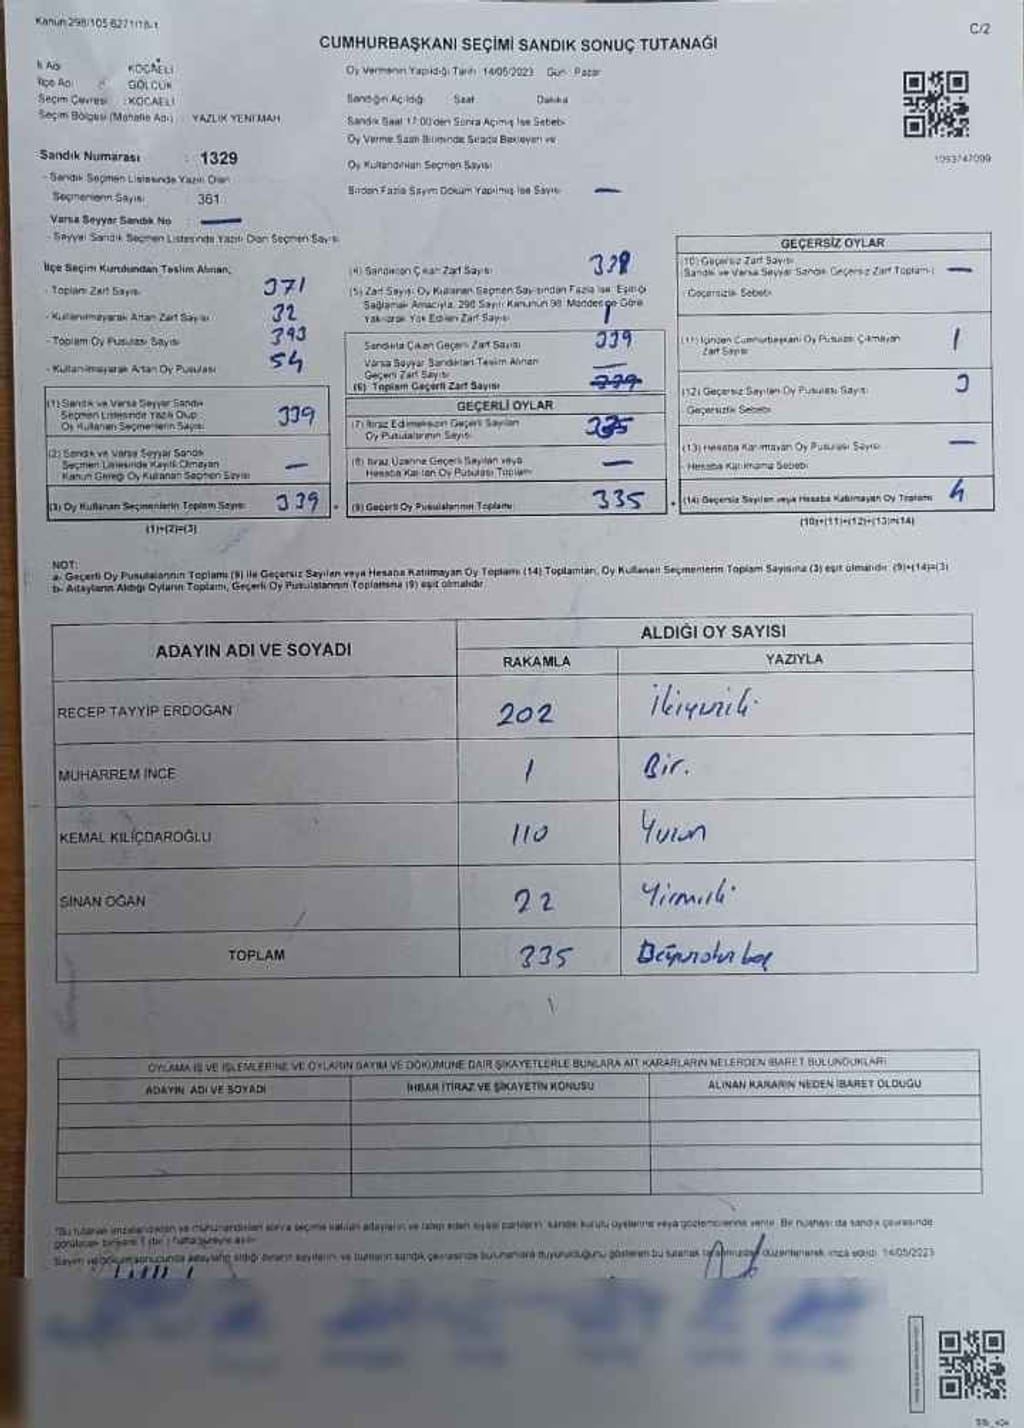 Kanun 298/105 6271/18-1
C/2
CUMHURBAŞKANI SEÇİMİ SANDIK SONUÇ TUTANAĞI
İl Adı KOCAELİ
İlçe Adı GÖLCÜK
Seçim Çevresi : KOCAELİ
Seçim Bölgesi (Mahalle Adı) : YAZLIK YENİ MAH
Oy Vermenin Yapıldığı Tarih 14/05/2023 Gün : Pazar
Sandığın Açıldığı Saat Dakika
Sandık Saat 17:00'den Sonra Açılmış İse Sebebi
Oy Verme Saati Bitiminde Sırada Bekleyen ve
Oy Kullandırılan Seçmen Sayısı
Birden Fazla Sayım Döküm Yapılmış İse Sayısı —
1093747099
Sandık Numarası : 1329
- Sandık Seçmen Listesinde Yazılı Olan
Seçmenlerin Sayısı 361
Varsa Seyyar Sandık No : —
- Seyyar Sandık Seçmen Listesinde Yazılı Olan Seçmen Sayısı
İlçe Seçim Kurulundan Teslim Alınan;
- Toplam Zarf Sayısı 371
- Kullanılmayarak Artan Zarf Sayısı 32
- Toplam Oy Pusulası Sayısı 393
- Kullanılmayarak Artan Oy Pusulası 54
(1) Sandık ve Varsa Seyyar Sandık
Seçmen Listesinde Yazılı Olup
Oy Kullanan Seçmenlerin Sayısı 339
(2) Sandık ve Varsa Seyyar Sandık
Seçmen Listesinde Kayıtlı Olmayan
Kanun Gereği Oy Kullanan Seçmen Sayısı —
(3) Oy Kullanan Seçmenlerin Toplam Sayısı 339
(1)+(2)=(3)
(4) Sandıktan Çıkan Zarf Sayısı
(5) Zarf Sayısı Oy Kullanan Seçmen Sayısından Fazla İse; Eşitliği
Sağlamak Amacıyla, 298 Sayılı Kanunun 98. Maddesine Göre
Yakılarak Yok Edilen Zarf Sayısı
Sandıkta Çıkan Geçerli Zarf Sayısı 339
Varsa Seyyar Sandıktan Teslim Alınan
Geçerli Zarf Sayısı —
(6) Toplam Geçerli Zarf Sayısı 339
GEÇERLİ OYLAR
(7) İtiraz Edilmeksizin Geçerli Sayılan
Oy Pusulalarının Sayısı 335
(8) İtiraz Üzerine Geçerli Sayılan veya
Hesaba Katılan Oy Pusulası Toplamı —
(9) Geçerli Oy Pusulalarının Toplamı 335
GEÇERSİZ OYLAR
(10) Geçersiz Zarf Sayısı
Sandık ve Varsa Seyyar Sandık Geçersiz Zarf Toplamı —
- Geçersizlik Sebebi
(11) İçinden Cumhurbaşkanı Oy Pusulası Çıkmayan
Zarf Sayısı 1
(12) Geçersiz Sayılan Oy Pusulası Sayısı 3
Geçersizlik Sebebi
(13) Hesaba Katılmayan Oy Pusulası Sayısı —
- Hesaba Katılmama Sebebi
(14) Geçersiz Sayılan veya Hesaba Katılmayan Oy Toplamı 4
(10)+(11)+(12)+(13)=(14)
NOT:
a- Geçerli Oy Pusulalarının Toplamı (9) ile Geçersiz Sayılan veya Hesaba Katılmayan Oy Toplamı (14) Toplamları, Oy Kullanan Seçmenlerin Toplam Sayısına (3) eşit olmalıdır. (9)+(14)=(3)
b- Adayların Aldığı Oyların Toplamı, Geçerli Oy Pusulalarının Toplamına (9) eşit olmalıdır
ADAYIN ADI VE SOYADI
ALDIĞI OY SAYISI
RAKAMLA YAZIYLA
RECEP TAYYİP ERDOĞAN 202 İkiyüziki
MUHARREM İNCE 1 Bir.
KEMAL KILIÇDAROĞLU 110 Yüzon
SİNAN OĞAN 22 Yirmiiki
TOPLAM 335
OYLAMA İŞ VE İŞLEMLERİNE VE OYLARIN SAYIM VE DÖKÜMÜNE DAİR ŞİKAYETLERLE BUNLARA AİT KARARLARIN NELERDEN İBARET BULUNDUKLARI
ADAYIN ADI VE SOYADI İHBAR İTİRAZ VE ŞİKAYETİN KONUSU ALINAN KARARIN NEDEN İBARET OLDUĞU
*Bu tutanak imzalandıktan ve mühürlendikten sonra seçime katılan adayların ve talep eden siyasi partilerin sandık kurulu üyelerine veya gözlemcilerine verilir. Bir nüshası da sandık çevresinde
Sayım ve döküm sonucunda adayların aldığı oyların sayılarını ve bunların sandık çevresinde bulunanlara duyurulduğunu gösteren bu tutanak tarafımızdan düzenlenerek imza edildi. 14/05/2023